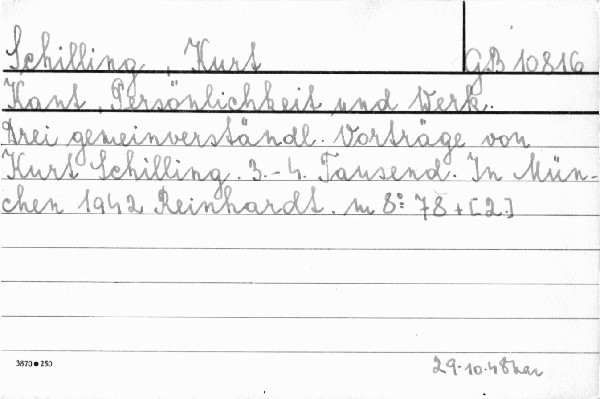 Schilling, Kurt GB 10816
Kant, Persönlichkeit und Werk.
Drei gemeinverständl. Vorträge von
Kurt Schilling. 3.-4. Tausend. In Mün-
chen 1942 Reinhardt. m 8° 78 + [2.]
3870●250
29.10.48